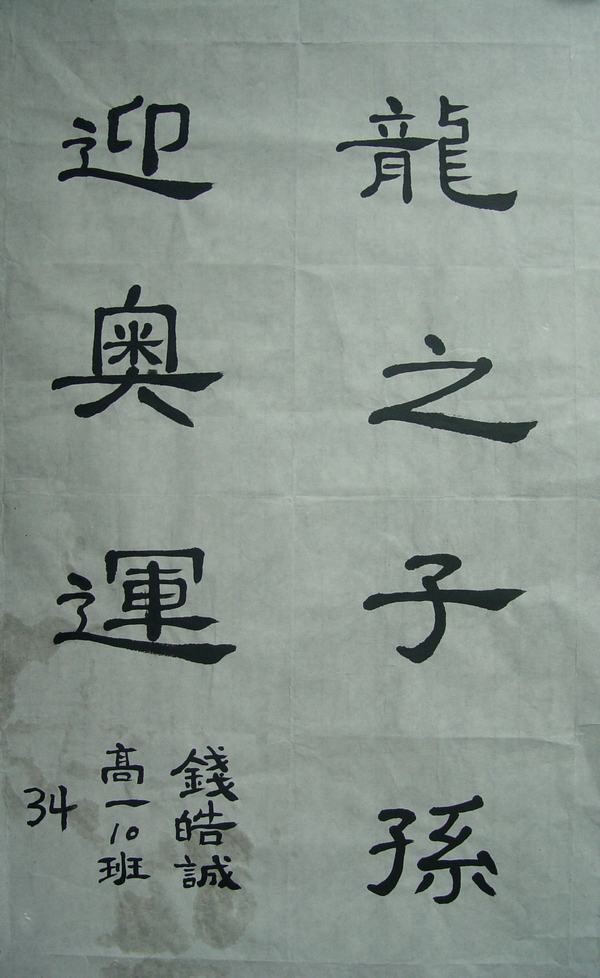 龍之子孫
迎奧運
錢皓誠
高一10班
34